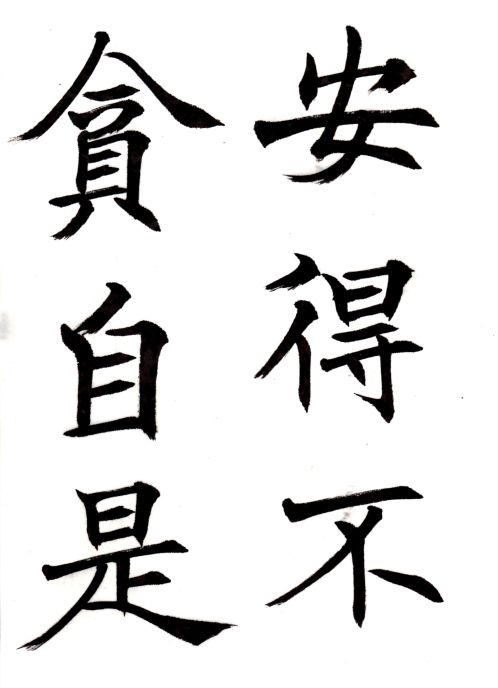 安得不
貪自是